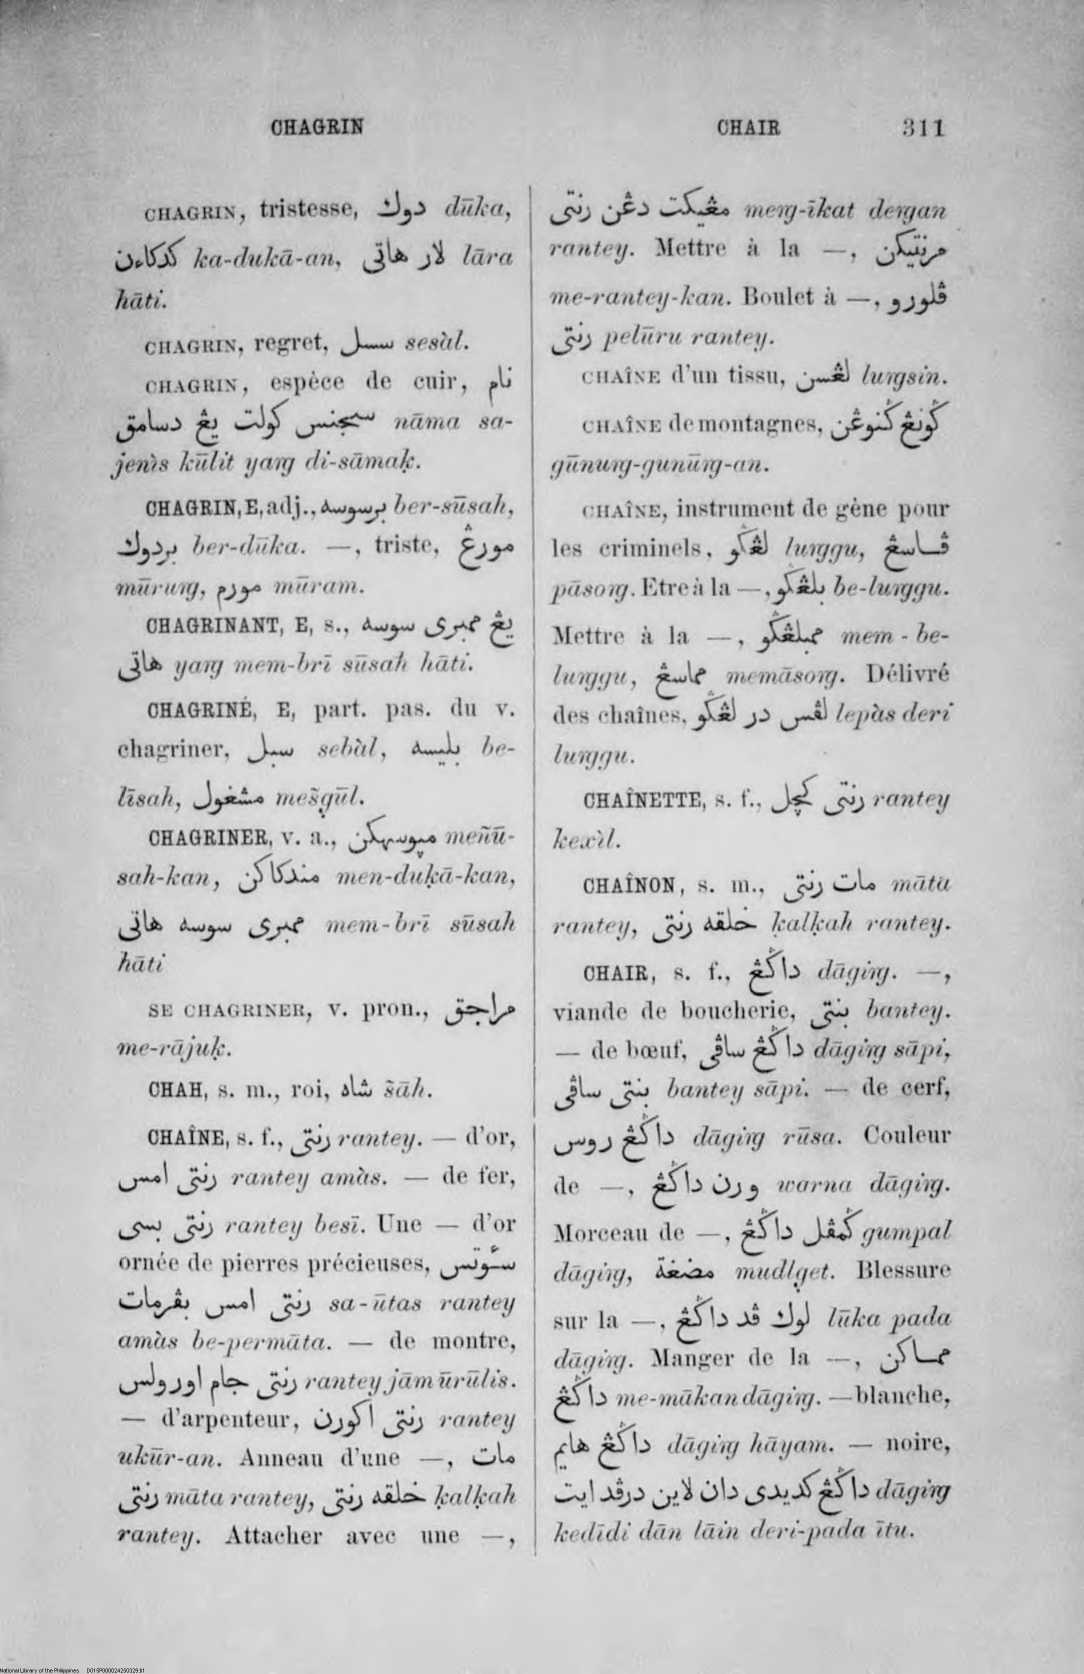 CHAGRIN
CHAIR 311
CHAGRIN, tristesse, دوك dūka,
كدكاءن ka-dukā-an, لار هاتى lāra
hāti.
CHAGRIN, regret, سسل sesàl.
CHAGRIN, espèce de cuir, نام
سمجنس كولت يڠ دسامق nāma sa-
jenìs kūlit yaŋg di-sāmaḳ.
CHAGRIN, E, adj., برسوسه ber-sūsah,
بردوك ber-dūka. —, triste, مورڠ
mūruŋg, مورم mūram.
CHAGRINANT, E, s., يڠ ممبرى سوسه
هاتى yaŋg mem-brī sūsah hāti.
CHAGRINÉ, E, part. pas. du v.
chagriner, سبل sebàl, بليسه be-
līsah, مشغول mes̃gūl.
CHAGRINER, v. a., ميوسهكن meñū-
sah-kan, مندكاكن men-duḳā-kan,
ممبرى سوسه هاتى mem-brī sūsah
hāti
SE CHAGRINER, v. pron., مراجق
me-rājuḳ.
CHAH, s. m., roi, شاه s̃āh.
CHAÎNE, s. f., رنتى rantey. — d'or,
رنتى امس rantey amàs. — de fer,
رنتى بسى rantey besī. Une — d'or
ornée de pierres précieuses, سئوتس
رنتى امس بڤرمات sa-ūtas rantey
amàs be-permāta. — de montre,
رنتى جام اورولس rantey jām ūrūlis.
— d'arpenteur, رنتى اكورن rantey
ukūr-an. Anneau d'une —, مات
رنتى māta rantey, خلقه رنتى ḳalḳah
rantey. Attacher avec une —,
مڠيكت دڠن رنتى meŋg-īkat deŋgan
rantey. Mettre à la —, مرنتيكن
me-rantey-kan. Boulet à —, ڤلورو
رنتى pelūru rantey.
CHAÎNE d'un tissu, لڠسن luŋgsin.
CHAÎNE de montagnes, ڬونڠ ڬنوڠن
gūnuŋg-gunūŋg-an.
CHAÎNE, instrument de gêne pour
les criminels, لڠڬو luŋggu, ڤاسڠ
pāsoŋg. Etre à la —, بلڠڬو be-luŋggu.
Mettre à la —, ممبلڠڬو mem-be-
luŋggu, مماسڠ memāsoŋg. Délivré
des chaînes, لڤس در لڠڬو lepàs deri
luŋggu.
CHAÎNETTE, s. f., رنتى كچل rantey
kexìl.
CHAÎNON, s. m., مات رنتى māta
rantey, خلقه رنتى ḳalḳah rantey.
CHAIR, s. f., داڬڠ dāgiŋg. —,
viande de boucherie, بنتى bantey.
— de bœuf, داڬڠ ساڤى dāgiŋg sāpi,
بنتى ساڤى bantey sāpi. — de cerf,
داڬڠ روس dāgiŋg rūsa. Couleur
de —, ورن داڬڠ warna dāgiŋg.
Morceau de —, ڬمڤل داڬڠ gumpal
dāgiŋg, مضغة mudl̤get. Blessure
sur la —, لوك ڤد داڬڠ lūka pada
dāgiŋg. Manger de la —, مماكن
داڬڠ me-mākan dāgiŋg. — blanche,
داڬڠ هايم dāgiŋg hāyam. — noire,
داڬڠ كديدى دان لاين درڤد ايت dāgiŋg
kedīdi dān lāin deri-pada ītu.
National Library of the Philippines